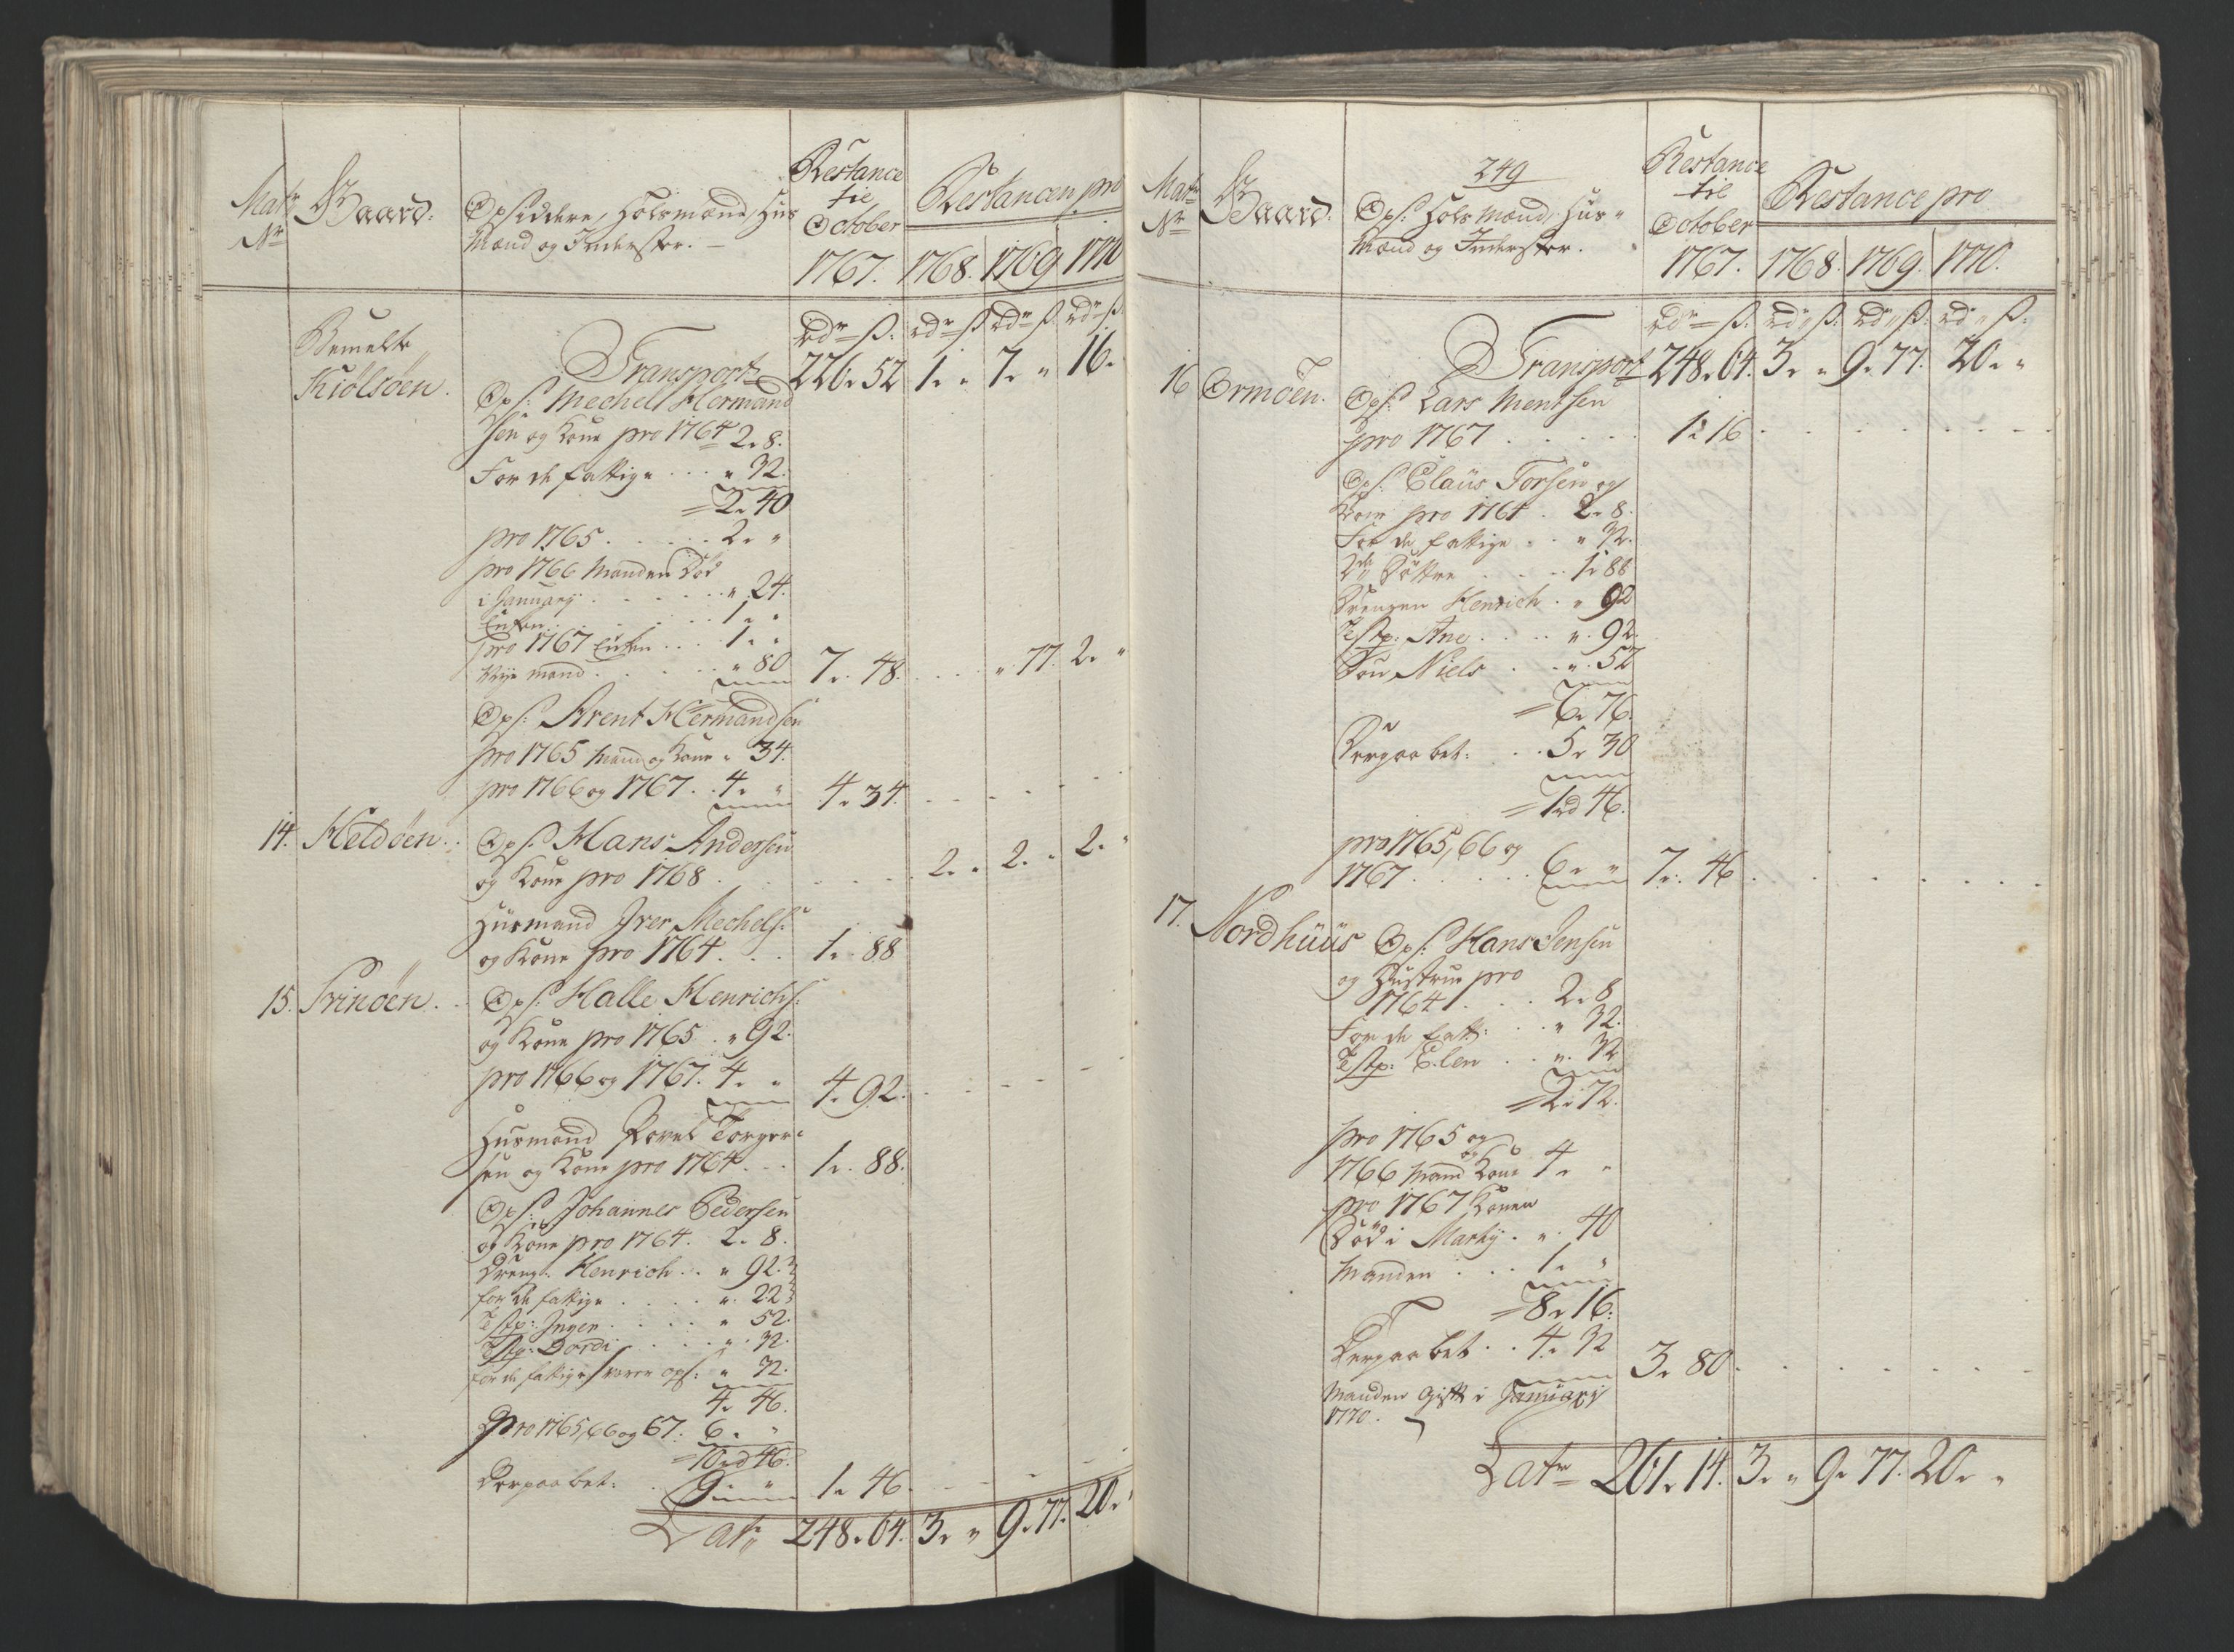 Matr Nr
Gaard.
Opsiddere, Holsmænd, Hus
Mænd og Inderster. –
Restance
til
October
1767.
Restancen pro
1768. 1769 1770
rdr ß. rdr ß rdr ß. rdr ß.
Bemelte
Kiölsöen.
Transport 226. 52 1. " 7. " 16.
Ops: Mechel Hermand
sen og Kone pro 1764 2. 8.
For de fattige . . . " 32.
2. 40
pro 1765 . . . . . 2. "
pro 1766 Manden död
i January . . . . . " 24.
Enken . . . . . 1. "
pro 1767 Enken . . . 1. "
Nye mand . . . . . " 80 7. 48. . . . " 77. 2. "
Ops: Arent Hermandsen
pro 1765 Mand og Kone " 34.
pro 1766 og 1767 . . 4. " 4. 34. - - - - -
14. Heldöen . . Ops: Hans Andersen
og Kone pro 1768 . . . . . 2. " 2. " 2. "
Husmand Iver Mechels:
og Kone pro 1764 . . . 1. 88
15. Svinöen . . Ops: Halle Henrichs:
og Kone pro 1765 . " 92.
pro 1766 og 1767. 4. " 4. 92. - - - - -
Husmand Povel Torger-
sen og Kone pro 1764 . . . 1. 88.
Ops: Johannes Pedersen
og Kone pro 1764. 2. 8.
Dreng: Henrich . . " 92.
for de fattige . . . . " 22
Tstp: Inger . . . . " 52.
Tstp: Dordi . . . . " 32.
for de fattige svarer ops: " 32.
4. 46.
Pro 1765, 66 og 67. 6. "
10rd 46.
Derpaa bet: . 9 " 1. 46. - - - -
Latr 248. 64. 3. " 9. 77. 20. "
249
Matr Nr
Gaard.
Ops: Holsmænd, Hus-
Mænd og Inderster.
Restance
til
October
1767.
Restance pro
1768. 1769. 1770.
rdr ß. rd ß. rd ß. rd ß.
Transport 248. 64. 3. " 9. 77. 20. "
16 Ormöen. Ops: Lars Mentsen
pro 1767 . . . . . 1. 16 . . . . . .
Ops: Claus Torsen og
Kone pro 1764 . 2. 8.
For de fattige . . " 32.
2de Döttre . . . . 1. 88
Drengen Henrich . " 92
Tstp: Ane . . . . " 92.
Sön Niels . . . " 52
6. 76.
Derpaa bet: . . 5. 30
1rd 46.
pro 1765, 66 og
1767 . . . . . 6. " 7. 46 . . . . . .
17. Nordhuus Ops: Hans Jensen
og Hustrue pro
1764 . . . . 2. 8
For de fatt: . . " 32.
Tstp: Elen . . " 32
2. 72.
pro 1765 og
1766 Mand og Kone 4. "
pro 1767 Konen
död i Marty . " 40
Manden . . . 1. "
8. 16.
Derpaa bet . . 4. 32 3. 80 . . . . . .
Manden Gift i Januarj
1770.
Latr 261. 14. 3. " 9. 77. 20. "